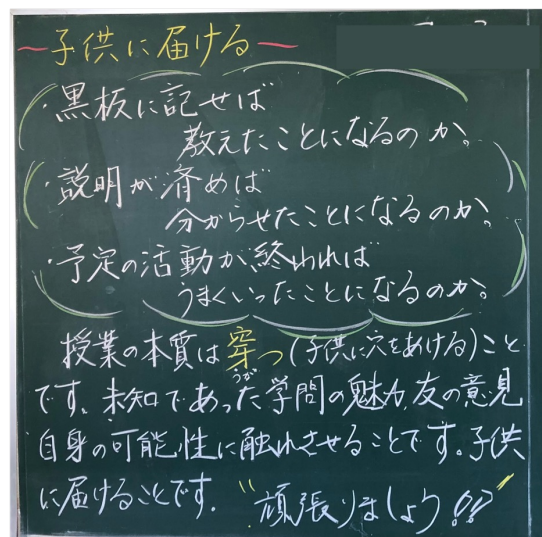 ～子供に届ける～
・黒板に記せば
教えたことになるのか。
・説明が済めば
分からせたことになるのか。
・予定の活動が終われば
うまくいったことになるのか。
授業の本質は穿つ(子供に穴をあける)こと
うが
です。未知であった学問の魅力、友の意見
自身の可能性に触れさせることです。子供
に届けることです。 "頑張りましょう!!"